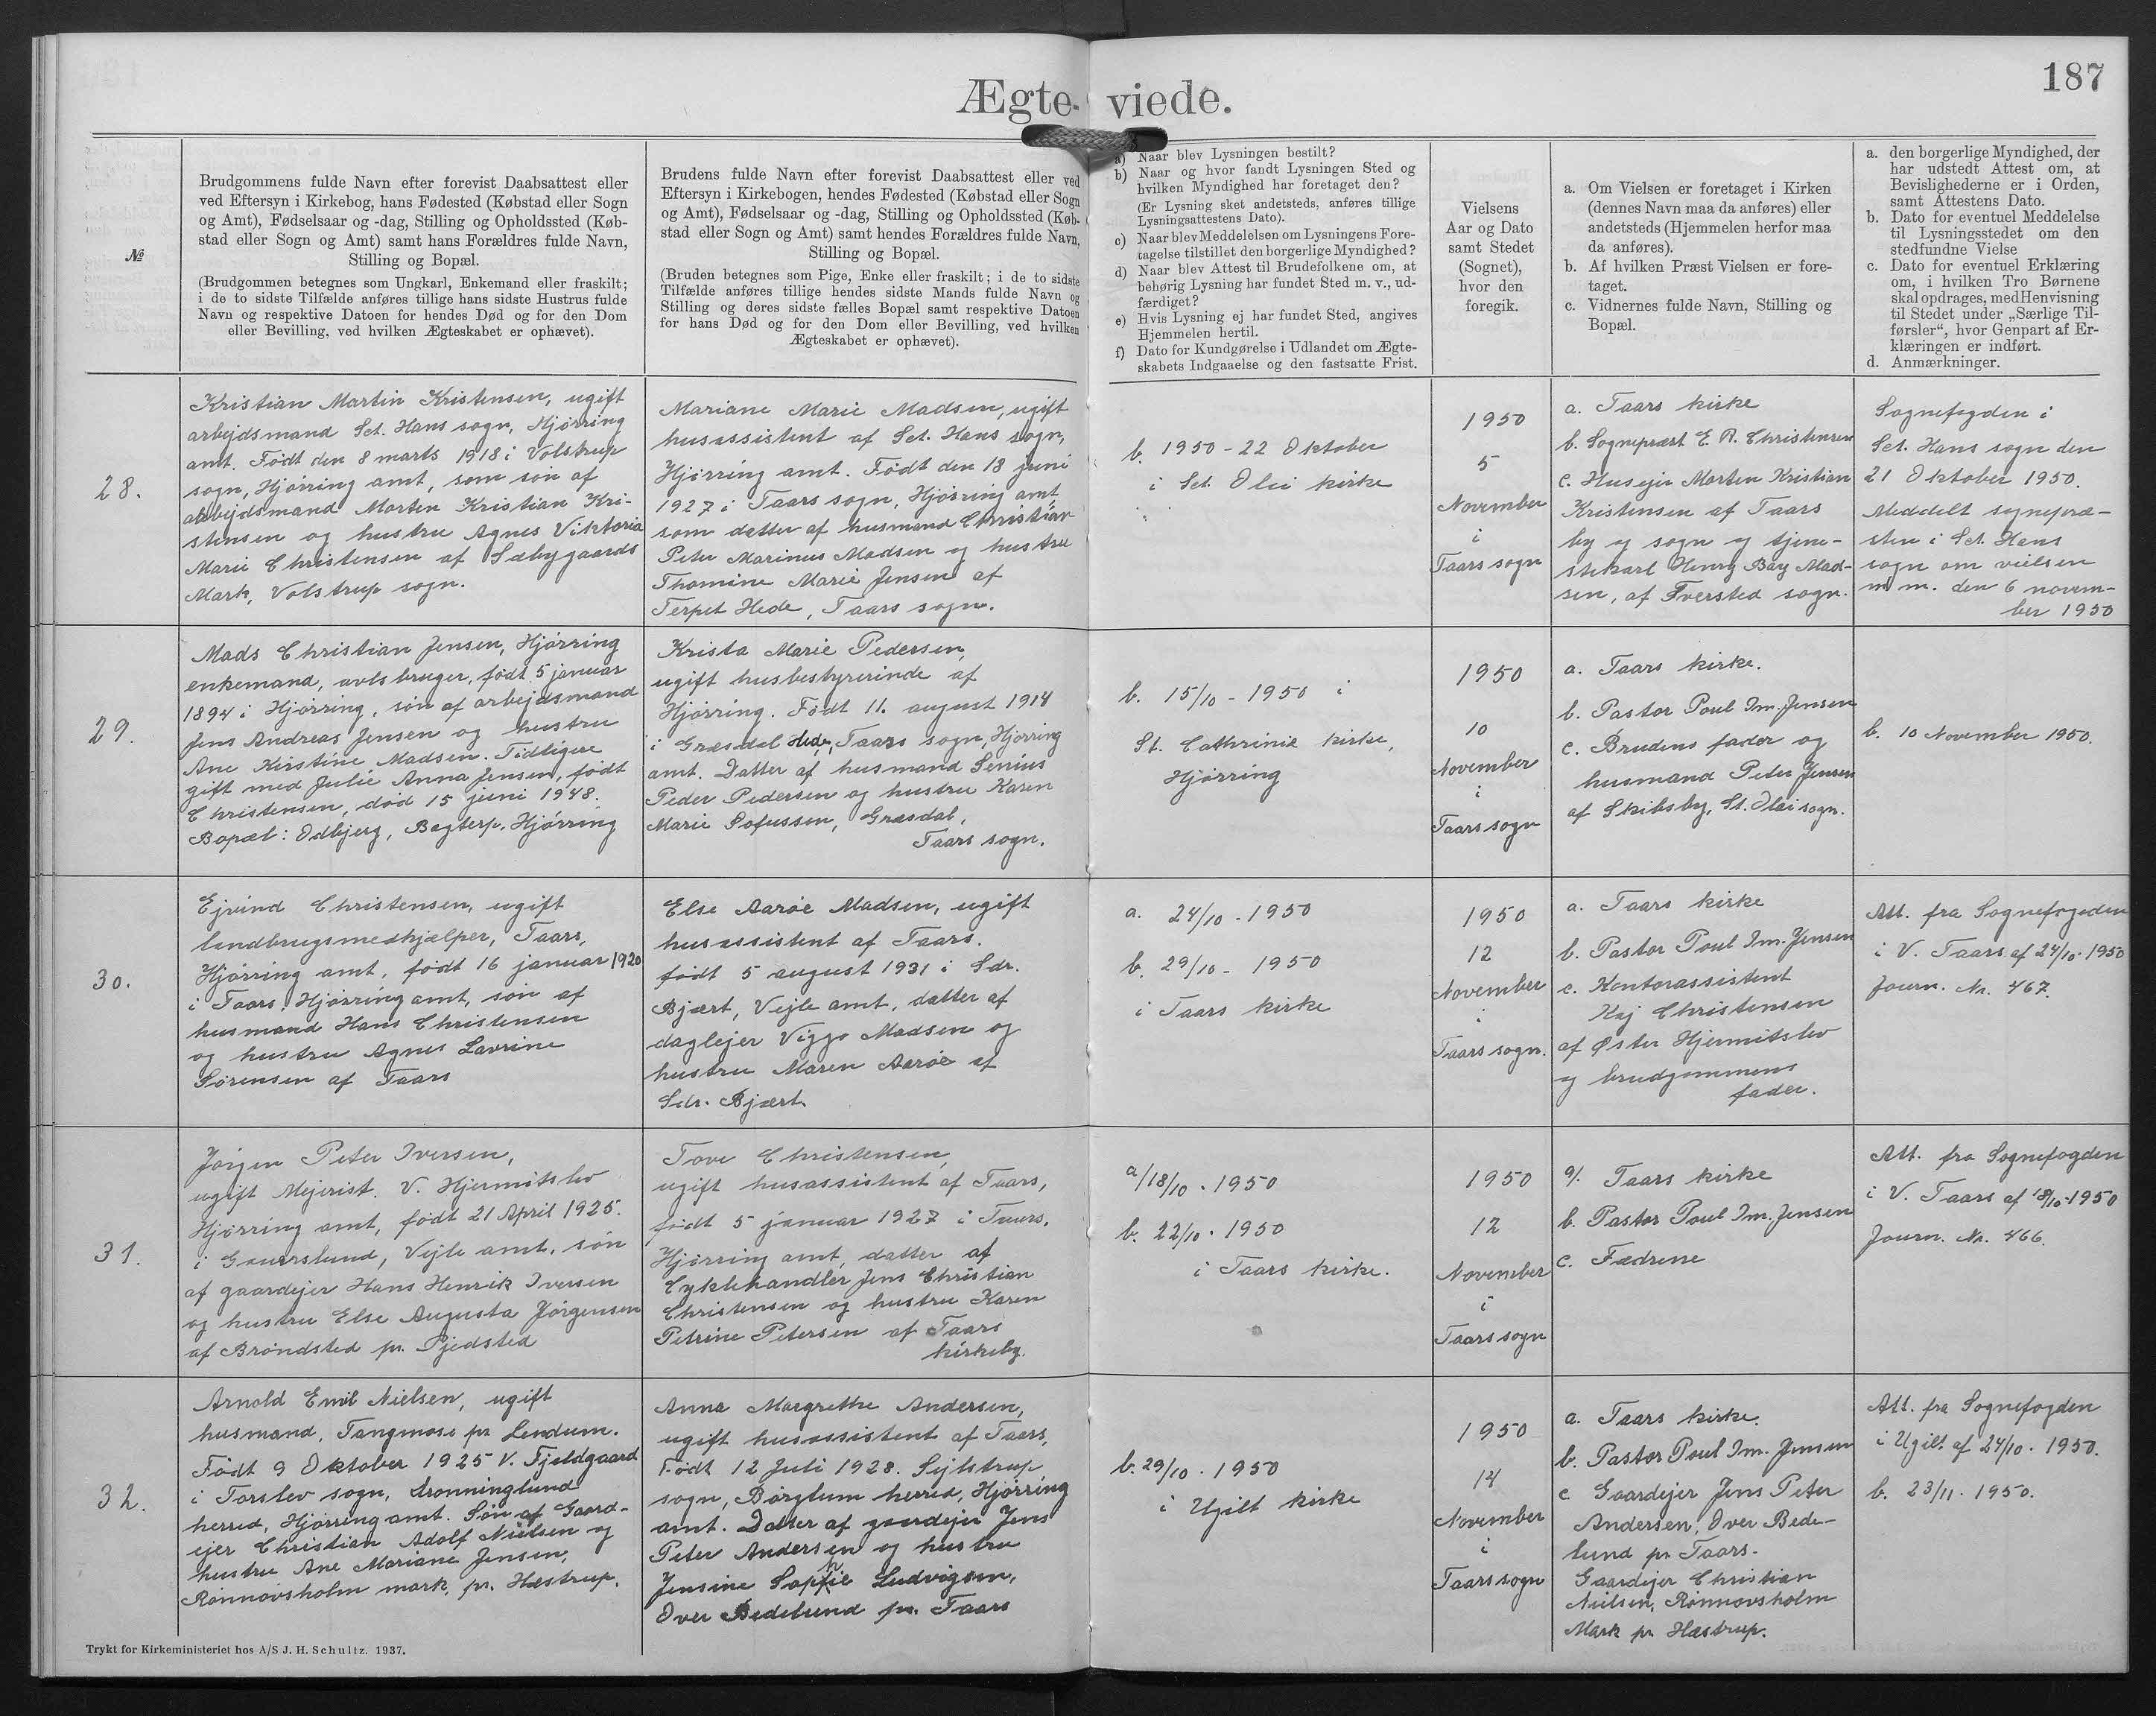 Ægte- viede.
187
№
Brudgommens fulde Navn efter forevist Daabsattest eller
ved Eftersyn i Kirkebog, hans Fødested (Købstad eller Sogn
og Amt), Fødselsaar og -dag, Stilling og Opholdssted (Køb-
stad eller Sogn og Amt) samt hans Forældres fulde Navn,
Stilling og Bopæl.
(Brudgommen betegnes som Ungkarl, Enkemand eller fraskilt;
i de to sidste Tilfælde anføres tillige hans sidste Hustrus fulde
Navn og respektive Datoen for hendes Død og for den Dom
eller Bevilling, ved hvilken Ægteskabet er ophævet).
Brudens fulde Navn efter forevist Daabsattest eller ved
Eftersyn i Kirkebogen, hendes Fødested (Købstad eller Sogn
og Amt), Fødselsaar og -dag, Stilling og Opholdssted (Køb-
stad eller Sogn og Amt) samt hendes Forældres fulde Navn,
Stilling og Bopæl.
(Bruden betegnes som Pige, Enke eller fraskilt; i de to sidste
Tilfælde anføres tillige hendes sidste Mands fulde Navn og
Stilling og deres sidste fælles Bopæl samt respektive Datoen
for hans Død og for den Dom eller Bevilling, ved hvilken
Ægteskabet er ophævet).
a) Naar blev Lysningen bestilt?
b) Naar og hvor fandt Lysningen Sted og
hvilken Myndighed har foretaget den?
(Er Lysning sket andetsteds, anføres tillige
Lysningsattestens Dato).
c) Naar blev Meddelelsen om Lysningens Fore-
tagelse tilstillet den borgerlige Myndighed?
d) Naar blev Attest til Brudefolkene om, at
behørig Lysning har fundet Sted m. v., ud-
færdiget?
e) Hvis Lysning ej har fundet Sted, angives
Hjemmelen hertil.
f) Dato for Kundgørelse i Udlandet om Ægte-
skabets Indgaaelse og den fastsatte Frist.
Vielsens
Aar og Dato
samt Stedet
(Sognet),
hvor den
foregik.
a. Om Vielsen er foretaget i Kirken
(dennes Navn maa da anføres) eller
andetsteds (Hjemmelen herfor maa
da anføres).
b. Af hvilken Præst Vielsen er fore-
taget.
c. Vidnernes fulde Navn, Stilling og
Bopæl.
a. den borgerlige Myndighed, der
har udstedt Attest om, at
Bevislighederne er i Orden,
samt Attestens Dato.
b. Dato for eventuel Meddelelse
til Lysningsstedet om den
stedfundne Vielse
c. Dato for eventuel Erklæring
om, i hvilken Tro Børnene
skal opdrages, med Henvisning
til Stedet under „Særlige Til-
førsler“, hvor Genpart af Er-
klæringen er indført.
d. Anmærkninger.
28.
Kristian Martin Kristensen, ugift
arbejdsmand Sct. Hans sogn, Hjørring
amt. Födt den 8 marts 1918 i Volstrup
sogn, Hjørring amt, som søn af
arbejdsmand Morten Kristian Kri-
stensen og hustru Agnes Viktoria
Marie Christensen af Sæbygaards
Mark, Volstrup sogn.
Mariane Marie Madsen, ugift
husassistent af Sct. Hans sogn,
Hjørring amt. Födt den 18 juni
1927 i Taars sogn, Hjørring amt
som datter af husmand Christian
Peter Marinus Madsen og hustru
Thomine Marie Jensen af
Terpet Hede, Taars sogn.
b. 1950 - 22 Oktober
i Sct. Olai kirke
1950
5
November
i
Taars sogn
a. Taars kirke
b. Sognepræst E. R. Christensen
c. Husejer Morten Kristian
Kristensen af Taars
by og sogn og tjene-
stekarl Henry Bay Mad-
sen, af Tversted sogn.
Sognefogden i
Sct. Hans sogn den
21 Oktober 1950.
Meddelt sognepræ-
sten i Sct. Hans
sogn om vielsen
m m. den 6 novem-
ber 1950
29.
Mads Christian Jensen, Hjørring
enkemand, avlsbruger, født 5 januar
1894 i Hjørring, søn af arbejdsmand
Jens Andreas Jensen og hustru
Ane Kirstine Madsen. Tidligere
gift med Julie Anna Jensen, født
Christensen, død 15 juni 1948.
Bopæl: Odbjerg, Bagterp, Hjørring
Krista Marie Pedersen,
ugift husbestyrerinde af
Hjørring. Født 11. august 1914
i Græsdal Hede, Taars sogn, Hjørring
amt. Datter af husmand Senius
Peder Pedersen og hustru Karen
Marie Sofussen, Græsdal,
Taars sogn.
b. 15/10 - 1950 i
St. Cathrinie kirke,
Hjørring
1950
10
November
i
Taars sogn
a. Taars kirke.
b. Pastor Poul Im. Jensen
c. Brudens fader og
husmand Peter Jensen
af Skibsby, St. Olai sogn.
b. 10 November 1950.
30.
Ejvind Christensen, ugift
landbrugsmedhjælper, Taars,
Hjørring amt, født 16 januar 1920
i Taars, Hjørring amt, søn af
husmand Hans Christensen
og hustru Agnes Lavrine
Sørensen af Taars
Else Aarøe Madsen, ugift
husassistent af Taars.
født 5 august 1931 i Sdr.
Bjært, Vejle amt, datter af
daglejer Viggo Madsen og
hustru Maren Aarøe af
Sdr. Bjært.
a. 24/10 - 1950
b. 29/10 - 1950
i Taars kirke
1950
12
November
i
Taars sogn.
a. Taars kirke
b. Pastor Poul Im. Jensen
c. Kontorassistent
Kaj Christensen
af Øster Hjermitslev
og brudgommens
fader.
Att. fra Sognefogeden
i V. Taars af 24/10 - 1950
Journ. Nr. 467.
31.
Jørgen Peter Iversen,
ugift Mejerist. V. Hjermitslev
Hjørring amt, født 21 April 1925.
i Gauerslund, Vejle amt, søn
af gaardejer Hans Henrik Iversen
og hustru Else Augusta Jørgensen
af Brøndsted pr. Pjedsted
Tove Christensen,
ugift husassistent af Taars,
født 5 januar 1927 i Taars,
Hjørring amt, datter af
Cyklehandler Jens Christian
Christensen og hustru Karen
Petrine Petersen af Taars
kirkeby.
a/ 18/10 - 1950
b. 22/10 - 1950
i Taars kirke.
1950
12
November
i
Taars sogn
a/. Taars kirke
b. Pastor Poul Im. Jensen
c. Fædrene
Att. fra Sognefogden
i V. Taars af 18/10-1950
Journ. Nr. 466.
32.
Arnold Emil Nielsen, ugift
husmand, Tangmose pr Lendum.
Født 9 Oktober 1925 V. Fjeldgaard
i Torslev sogn, Dronninglund
herred, Hjørring amt. Søn af Gaard-
ejer Christian Adolf Nielsen og
hustru Ane Mariane Jensen,
Rønnovsholm mark, pr. Hæstrup.
Anna Margrethe Andersen,
ugift husassistent af Taars,
Født 12 Juli 1928. Sejlstrup
sogn, Børglum herred, Hjørring
amt. Datter af gaardejer Jens
Peter Andersen og hustru
Jensine Sophie Ludvigsen,
Over Bedelund pr. Taars
b. 29/10 - 1950
i Ugilt kirke
1950
14
November
i
Taars sogn
a. Taars kirke.
b. Pastor Poul Im. Jensen
c Gaardejer Jens Peter
Andersen, Over Bede-
lund pr Taars.
Gaardejer Christian
Nielsen, Rønnovsholm
Mark pr Hæstrup.
Att. fra Sognefogden
i Ugilt af 24/10 - 1950.
b. 23/11 - 1950.
Trykt for Kirkeministeriet hos A/S J. H. Schultz. 1937.